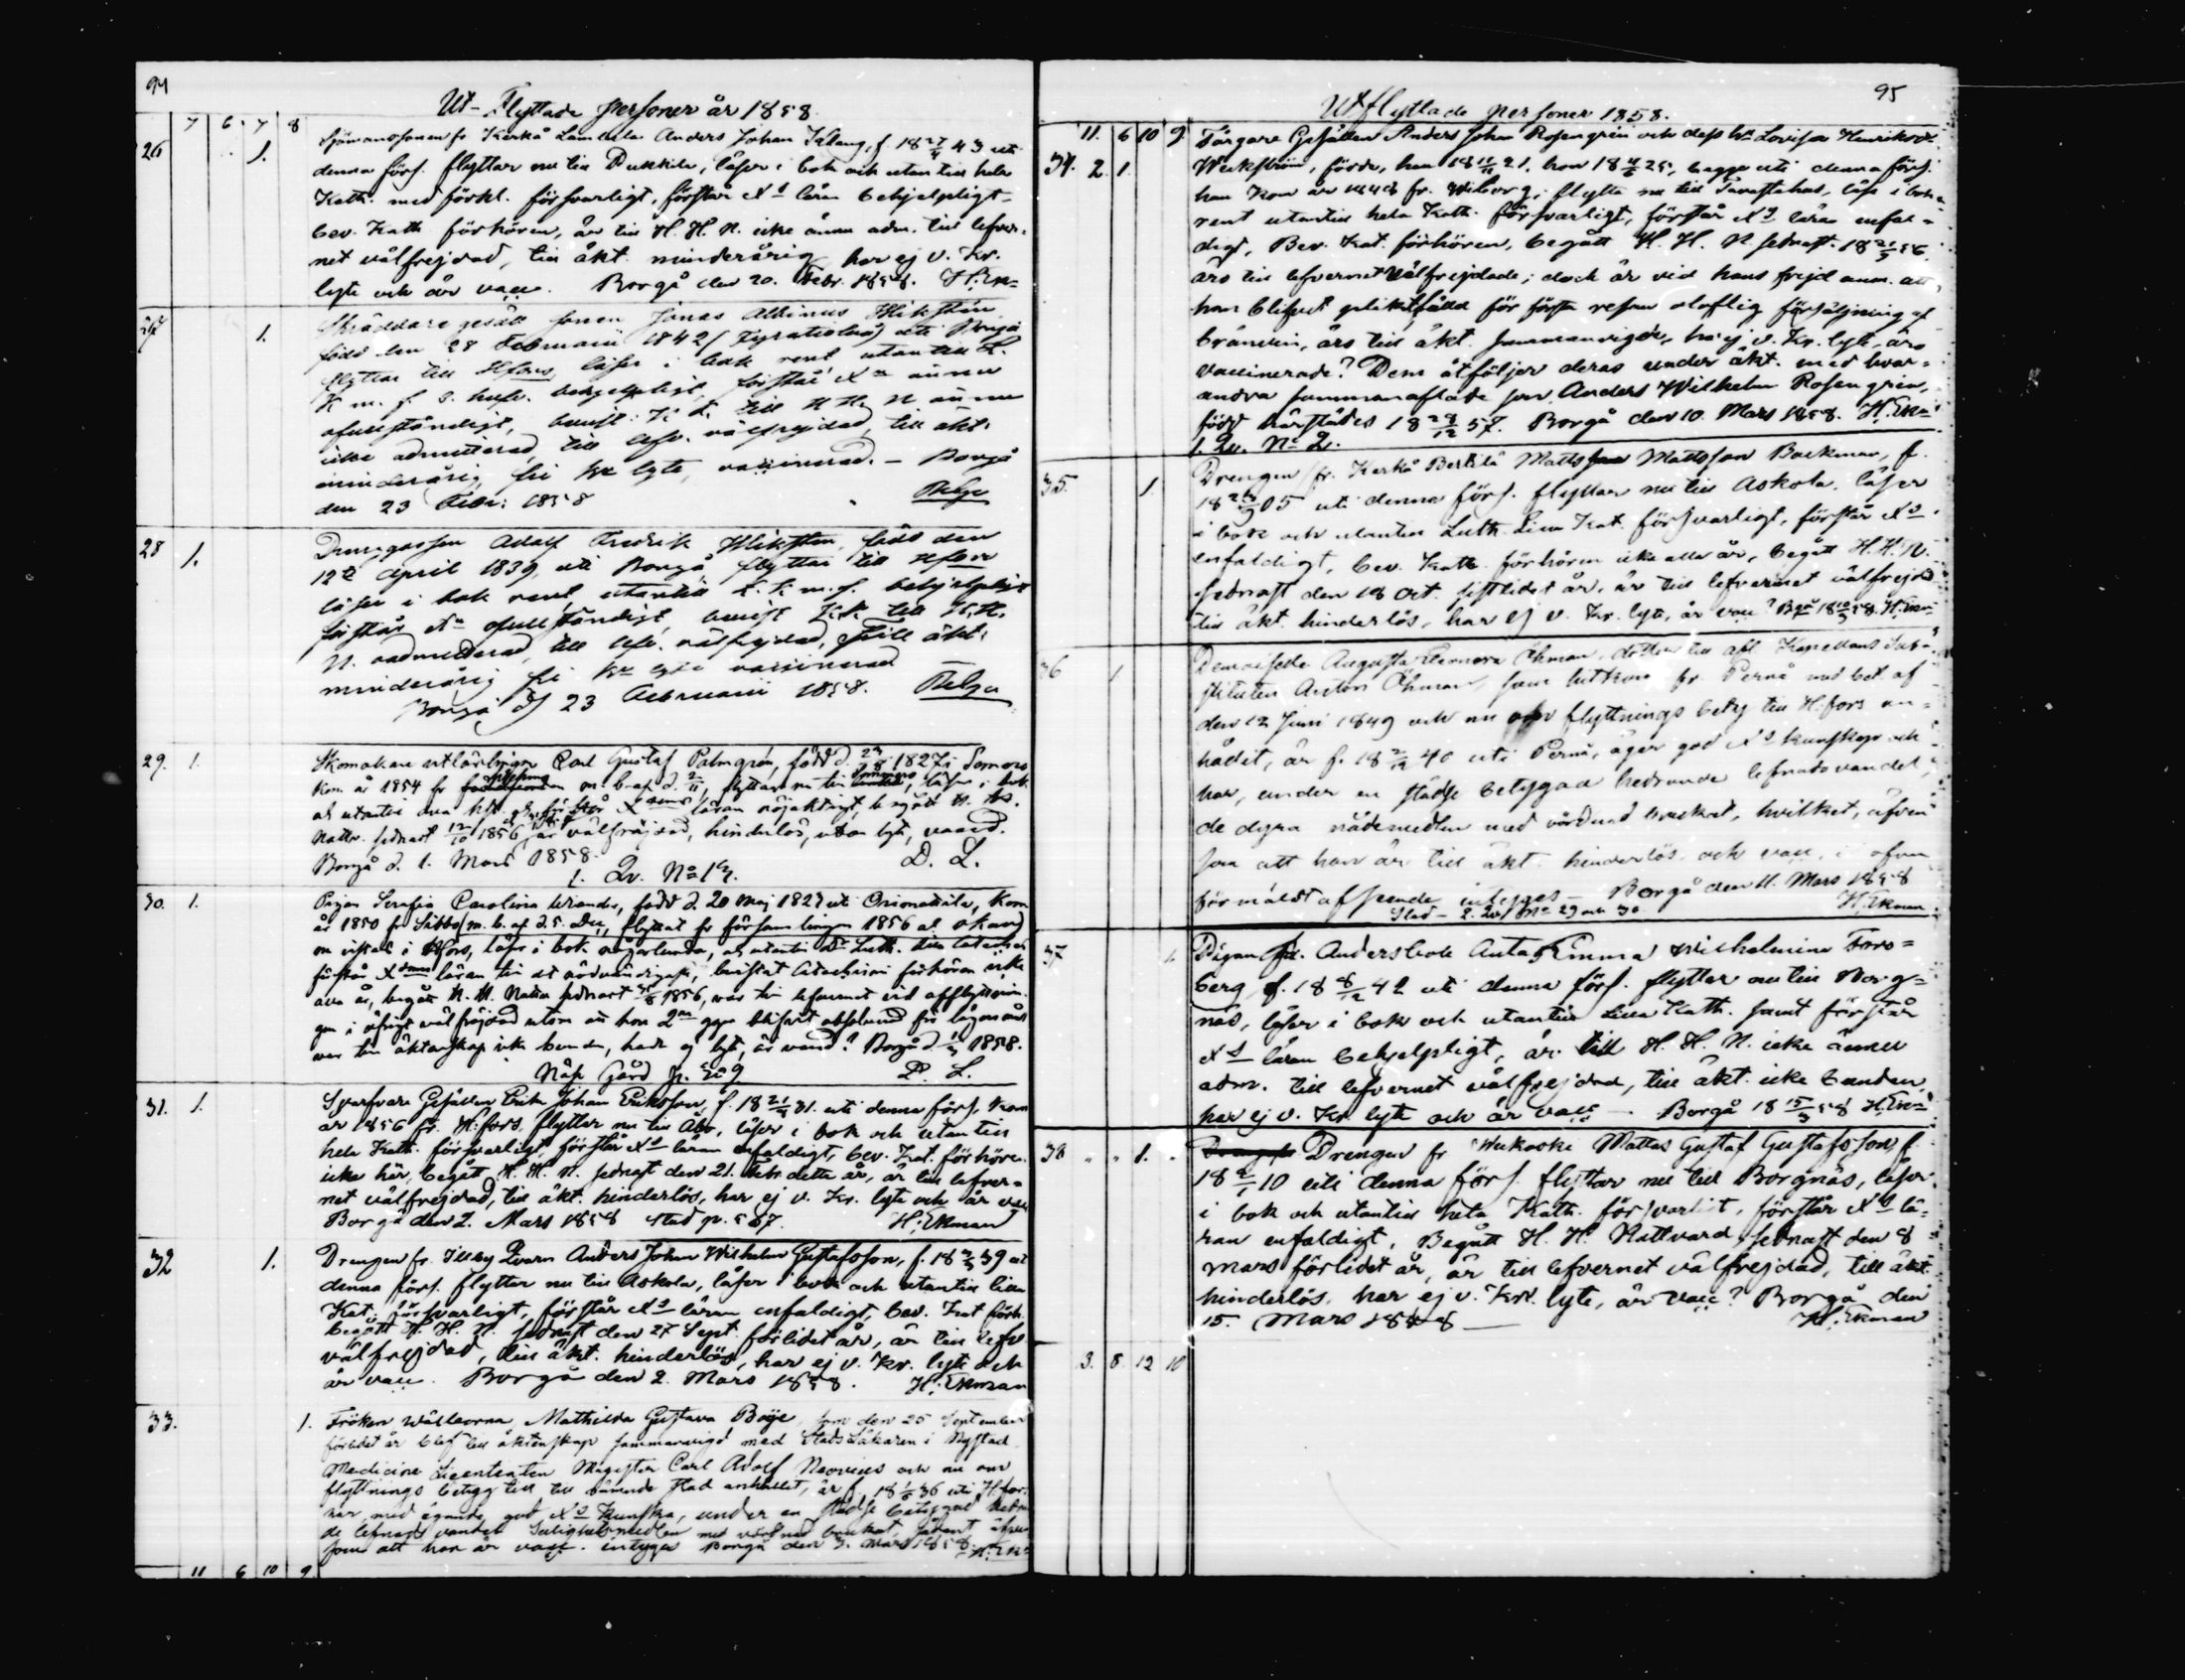 94
Ut-Flyttade personer år 1858.
7 6 7 8
26 1. Sjömanssonen fr Kerkå Lambila Anders Johan Klang, f. 18 27/4 43 uti
denna förs. flyttar nu till Pukkila, läser i bok och utantill hela
Kath. med förkl. försvarligt, förstår Xs läran behjelpligt
bev. Kath förhören, är till H. H. N. icke ännu adm. till lefver-
net välfrejdad, till äkt. minderårig har ej v. Kr.
lyte och är vacc. Borgå den 20. Febr. 1858. H. Ek=
27 1. Skräddare gesäll sonen Jonas Albinus Wikstén
född den 28 Februarii 1842 uti Borgå
flyttar till Hfors, läser i bok rent utantill L.
K m. f. s. behjelpligt förstår Xn ännu
ofullständigt, bevist. K. f. till H H N ännu
icke admitterad, till lefv. välfrejdad, till äkt.
minderårig, fri Kr lyte, vaccinerad. — Borgå
den 23 Febr: 1858
28 1. Drenggossen Adolf Fredrik Wiksten född den
12te April 1839, uti Borgå flyttar till Hfors
läser i bok rent utantill L. K. m. f. behjelpligt
förstår Xn ofullständigt bevist K.f. till H. H.
N. admitterad, till lefv. välfrejdad, till äkt.
minderårig fri Kr lyte vaccinerad —
Borgå d/ 23 Februarii 1858.
29. 1. Skomakare utlärlingen Carl Gustaf Palmgrén, född d. 1827 i Somero
Kom. år 1854 fr m. b. af d. 2/11, flyttar nu till läser i bok
förstår Xdoms läran nöjaktigt, begått H. H.
Nattv. sednast 12/10 1856, är välfrejdad, hinderlös, utan lyte, vaccd.
Borgå d. 1. Mars 1858. D. L.
1. Qv. No 1
30. 1. Pigan Serafia Carolina, född d. 20 Maj 1827 uti Orimattila, kom
år 1850 fr Sibbo m. b. af d. 5. Dec, flyttat fr församlingen 1856 at
vistas i Hfors, läser i bok någorlunda, at utantill Dr Luth. lilla cateches
förstår Xdoms läran till det nödvändigaste, bevistat Catechismi förhören icke
alla år, begått H. H. Nattv sednast 1856, war till lefvernet vid afflyttnin
gen i öfrigt välfrejdad utom att hon 2ne ggr blifvit absolverad för lägersmål
war till äktenskap icke bunden, hade ej lyte, är vaccd? Borgå d. 1858.
Näse Gård p. 509 D. L.
31. 1. Svarfvare Gesällen Erik Johan Eriksson, f. 18 21/4 31. uti denna förs, kom
år 1856 fr. H.fors, flyttar nu till Åbo, läser i bok och utantill
hela Kath. försvarligt, förstår Xs läran enfaldigt, bev. Kat. förhören
icke här, begått H. H. N. sednast den 21. Febr. detta år, är till lefver-
net välfrejdad, till äkt. hinderlös, har ej v. Kr. lyte och är vacc
Borgå den 2. Mars 1858 Stad p. 567. H. Ekman
32 1. Drengen fr. Illby Qvarn Anders Johan Wilhelm Gustafsson, f. 18 39 uti
denna förs. flyttar nu till Askola, läser i bok och utantill lilla
Kat. försvarligt, förstår Xs läran enfaldigt, bev. Kat förh.
begått H. H. N. sednast den 27 Sept. förlidet år, är till lefv.
välfrejdad, till äkt. hinderlös, har ej v. Kr. lyte och
är vacc. Borgå den 2. Mars 1858. H. Ekman
33. 1. Fröken Mathilda Gustava Boije, som den 25 September
förlidet år blef till äktenskap sammanvigd med StadsLäkaren i Nystad
Medicine Licentiaten Magister Carl Adolf Neovius och nu om
flyttnings betyg till till bemälde stad anhållet, är f. 18 1/6 36 uti H.fors
har med ägande god Xs Kunskap, under en städse betygad hedran
de lefnads vandel Salighetsmedlen med vördnad brukat, sådant äfven
som att hon är vacc. intygas Borgå den 3. Mars 1858. H. Ek=
11 6 10 9
95
Utflyttade personer 1858.
11. 6 10 9
34. 2. 1. Färgare Gesällen Anders Johan Rosengrén och dess hu Lovisa Henriksdr
Weckström, födde, han 18 11/11 21, hon 18 25, begge uti denna förs.
han kom år 1848 fr. Wiborg, flytta nu till Tavastehus, läsa i bok
rent utantill hela Kath. försvarligt, förstår Xs läran enfal-
digt, Bev. Kat. förhören, begått H. H. N sednast 18 21/5 56.
äro till lefvernet välfrejdade; dock är vid hans frejd anm. att
han blifvit pliktfälld för första resan oloflig försäljning af
bränvin, äro till äkt. sammanvigde, ha ej v. Kr. lyte, äro
vaccinerade? Dem åtföljer deras under äkt. med hvar-
andra sammanaflade son Anders Wilhelm Rosengrén,
född härstädes 18 28/12 57. Borgå den 10. Mars 1858. H. Ek=
1. Qv. No 2.
35. 1. Drengen fr. Kerkå Bertilä Matts Mattsson Backman, f.
18 05 uti denna förs. flyttar nu till Askola, läser
i bok och utantill Luth. Lilla Kat. försvarligt, förstår Xs
enfaldigt, bev. Kath. förhören icke alla år, begått H. H. N.
sednast den 18 Oct. sistlidet år, är till lefvernet välfrejd
till äkt. hinderlös, har ej v. Kr. lyte, är vacc? Bgå 18 58. H. Ek=
36 1 Demoiselle Augusta Eleonora Öhman, dotter till afl. Kapellans Sub-
stituten Anton Öhman, som hitkom fr. Pernå med bet. af
den 12 Juni 1849 och nu om flyttnings betyg till H.fors an-
hållit, är f. 18 2/12 40 uti Pernå, äger god Xs kunskap och
har, under en städse betygad hedrande lefnadsvandel,
de dyra nådemedlen med vördnad brukat, hvilket, äfven
som att hon är till äkt. hinderlös och vacc. i ofvan
förmäldt afseende intyges — Borgå den 11. Mars 1858
Stad - 2. Qv. No 29 och 30. H. Ekman
37 1. Pigan fr. Andersböle Anta Emma Wilhelmina Fors=
berg, f. 18 8/12 42 uti denna förs. flyttar nu till Borg=
näs, läser i bok och utantill Lilla Kath. samt förstår
Xs läran behjelpligt, är till H. H. N. icke ännu
adm. till lefvernet välfrejdad, till äkt. icke bunden,
har ej v. Kr. lyte och är vacc — Borgå 18 15/3 58 H. Ek=
38 " " 1. " Drengen fr Wekoski Mattas Gustaf Gustafsson, f.
18 2/1 10 uti denna förs. flyttar nu till Borgnäs, läser
i bok och utantill hela Kath. försvarligt, förstår Xs lä-
ran enfaldigt, Begått H. H. Nattvard sednast den 8
mars förlidet år, är till lefvernet välfrejdad, till äkt.
hinderlös, har ej v. Kr. lyte, är vacc? Borgå den
15. Mars 1858 — H. Ekman
3. 8 12 10